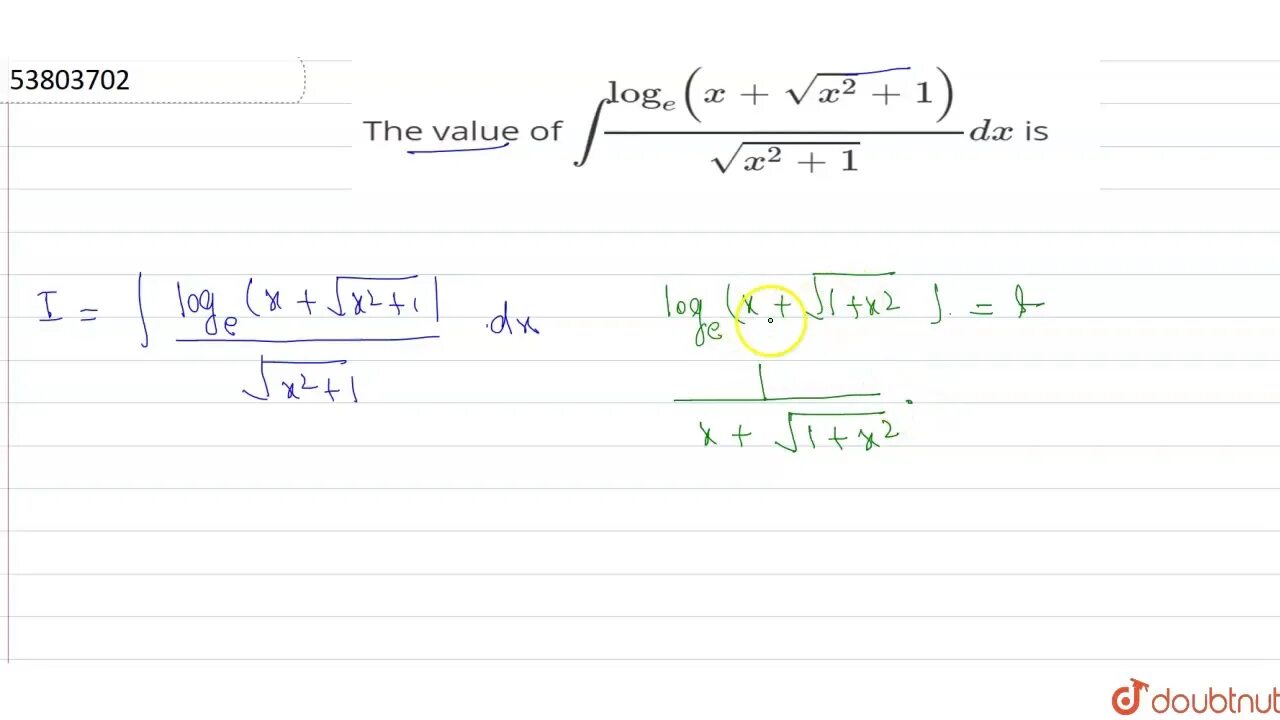 53803702
The value of ∫ log_e(x + √(x² + 1)) / √(x² + 1) dx is
I = ∫ log_e (x + √(x²+1)) / √(x²+1) .dx
log_e (x + √(1+x²) ). = t
1 / (x + √(1+x²)) .
doubtnut